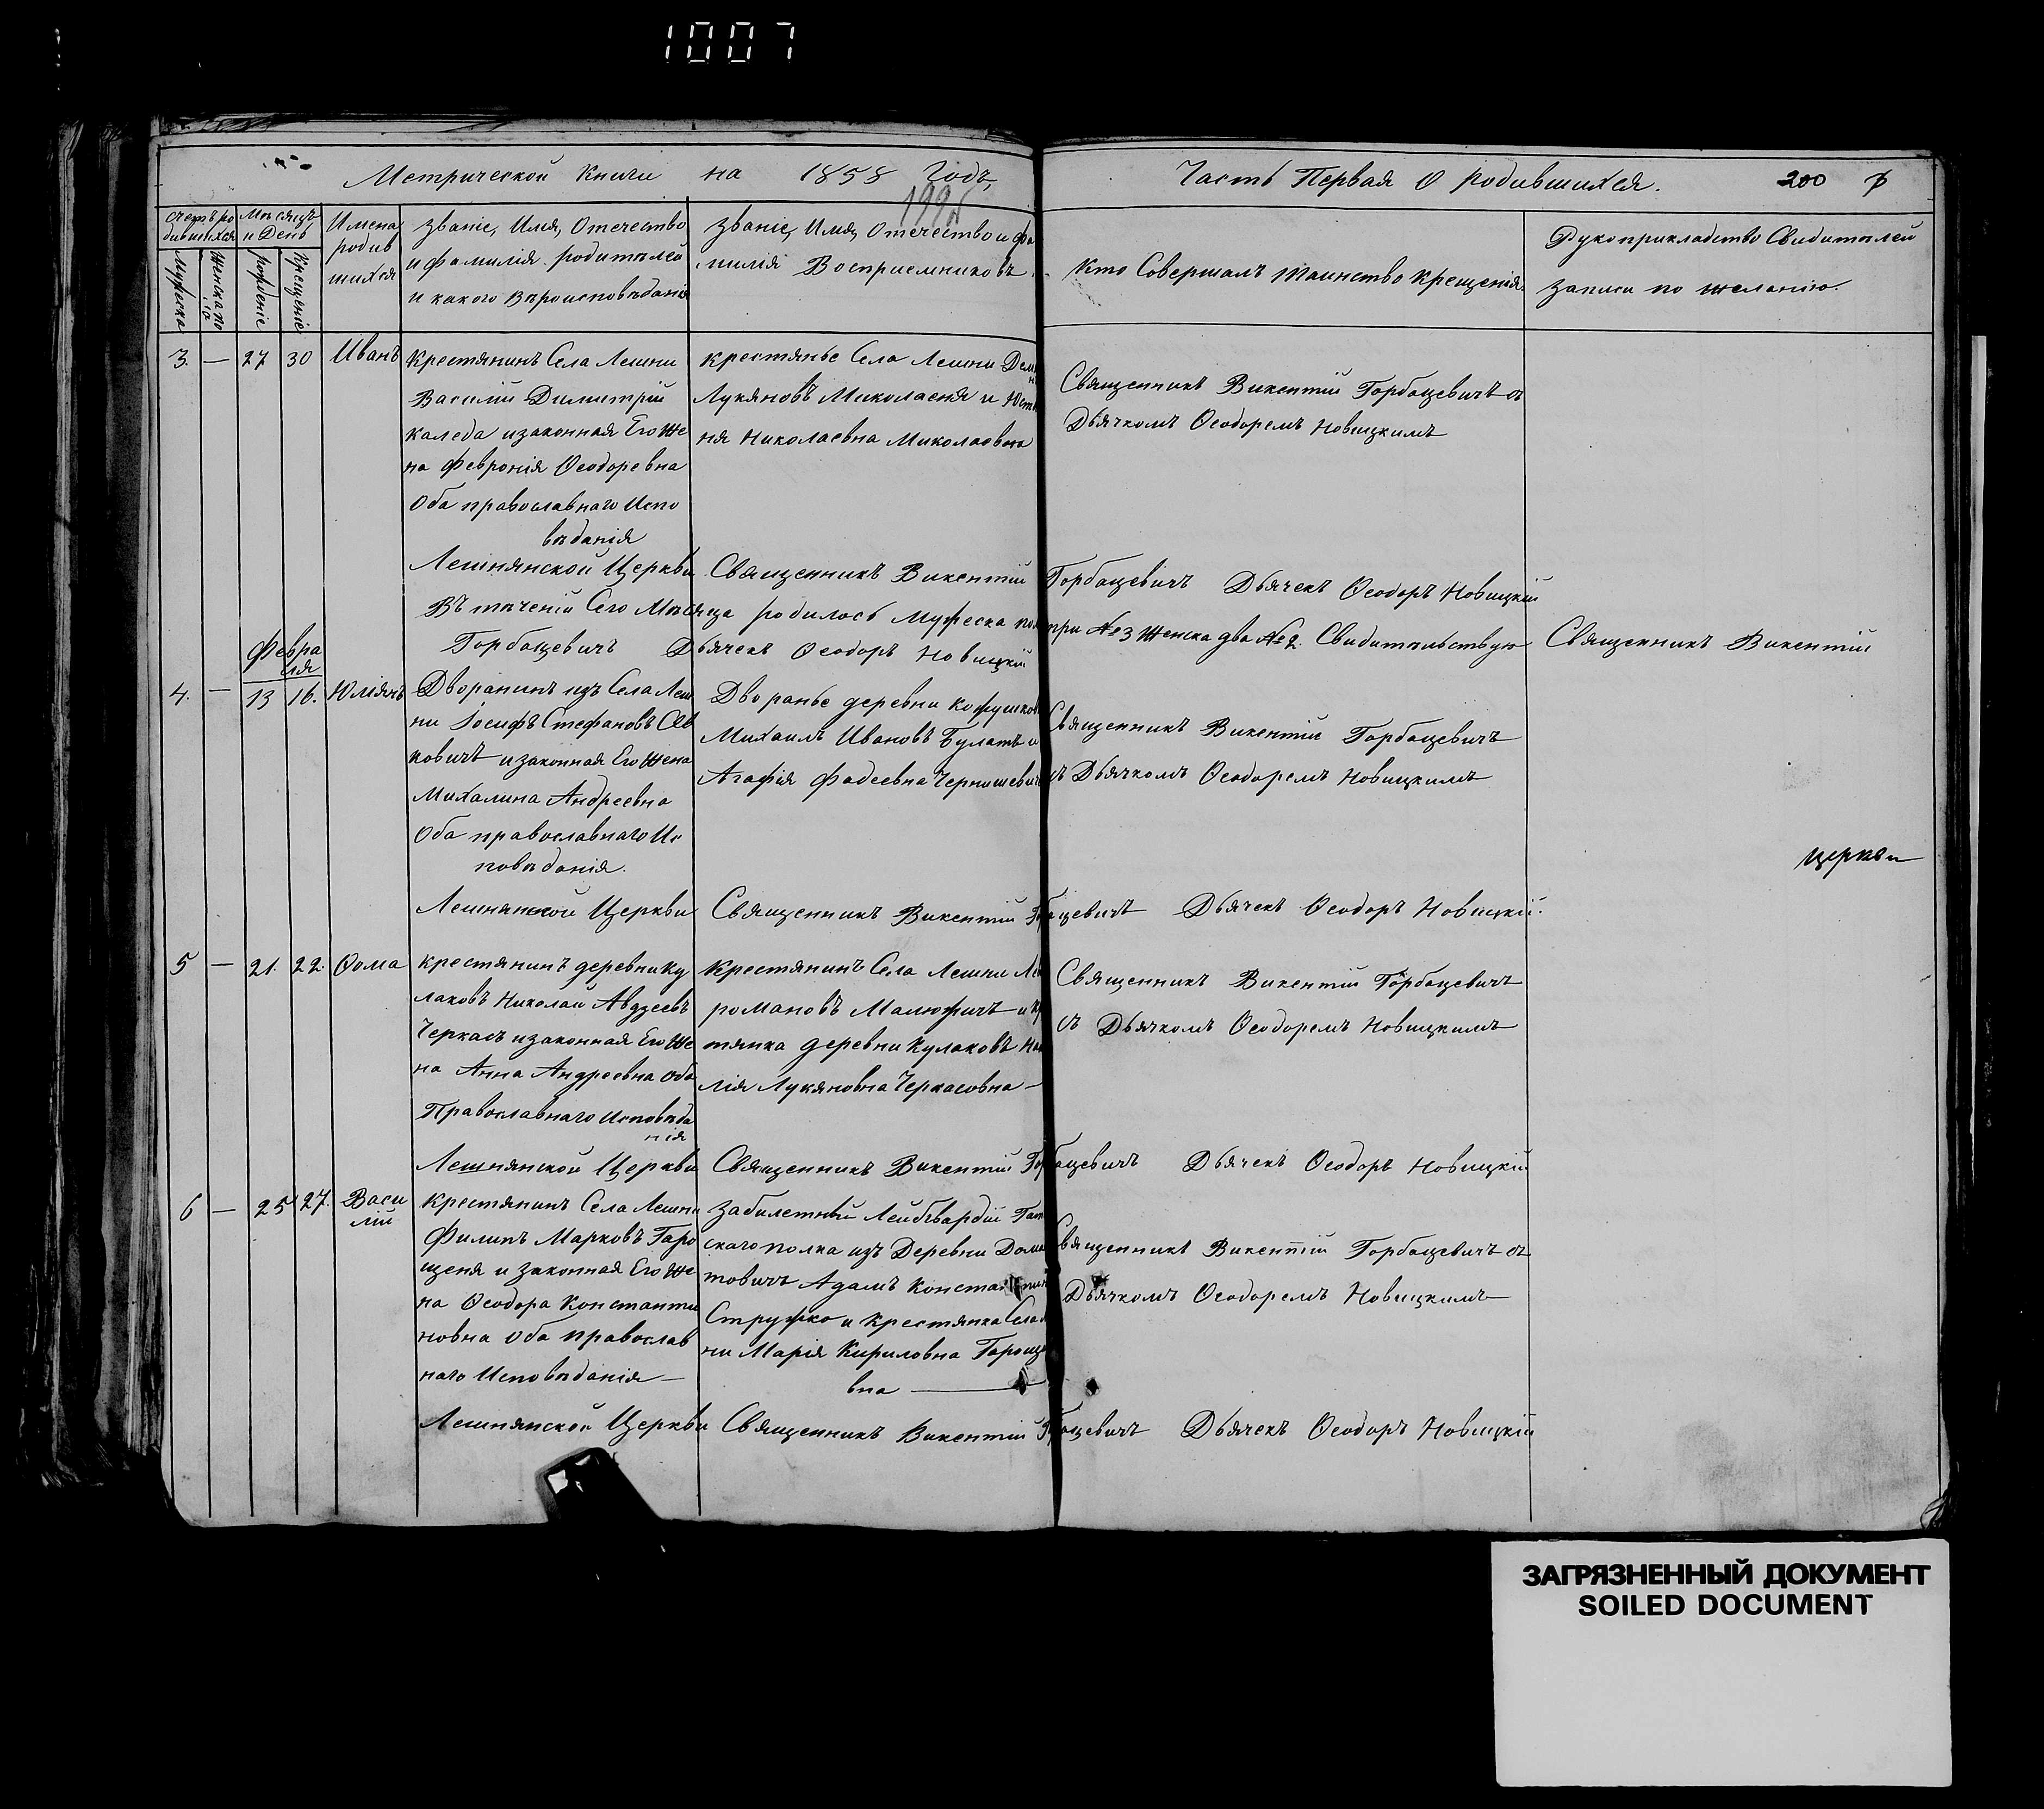 1007
Метрической Книги на 1858 Годъ,
Часть Первая О родившихся.
200
Счетъ ро
дившихся
Мѣсяцъ
и День
Мужеска
Женска по
Рожденіе
Крещеніе
Имена
родив
шихся
Званіе, Имя, Отечество
и фамилія родителей
и какого вѣроисповѣданія
Званіе, Имя, Отечество и фа
милія Воспріемниковъ.
Кто Совершалъ таинство Крещенія.
Рукоприкладство Свидителей
записи по желанію.
3. — 27 30 Иванъ
Крестянинъ Села Лешни
Василій Димитрій
Каледа изаконная Его Же
на Февронія Ѳеодоревна
Оба православнаго Испо
вѣданія
Крестянье Села Лешни
Лукяновъ Миколаеня и
ня Николаевна Миколаевна
Священникъ Викентій Горбацевичъ съ
Дьячкомъ Ѳеодоремъ Новицкимъ
Лешнянской Церкви Священникъ Викентій Горбацевичъ Дьячекъ Ѳеодоръ Новицкій
Въ теченіи Сего Мѣсяца родилось Мужеска пола три №3 Женска два №2. Свидительствую Священникъ Викентій
Горбацевичъ Дьячекъ Ѳеодоръ Новицкій
Февра
ля
4. — 13 16. Юліянъ
Дворанинъ изъ Села Леш
ни Іосифъ Стефановъ
ковичъ изаконная Его Жена
Михалина Андреевна
Оба православнаго Ис
повѣданія.
Дворанье деревни
Михаилъ Ивановъ Булатъ и
Агафія Фадеевна
Священникъ Викентій Горбацевичъ
съ Дьячкомъ Ѳеодоремъ Новицкимъ
церкви
Лешнянской Церкви Священникъ Викентій Горбацевичъ Дьячекъ Ѳеодоръ Новицкій.
5 — 21. 22. Ѳома
Крестянинъ деревни Ку
лаковъ Николай Авдзеевъ
Черкасъ изаконная Его Же
на Анна Андреевна Оба
Православнаго Исповѣда
нія
Крестянинъ Села Лешни
Романовъ Малюжичъ и
тянка деревни Кулаковъ
лія Лукяновна Черкасовна —
Священникъ Викентій Горбацевичъ
съ Дьячкомъ Ѳеодоремъ Новицкимъ
Лешнянской Церкви Священникъ Викентій Горбацевичъ Дьячекъ Ѳеодоръ Новицкій
6 — 25 27. Васи
лій
Крестянинъ Села Лешни
Филипъ Марковъ Гаро
щеня и законная Его Же
на Ѳеодора Константи
новна Оба православ
наго Исповѣданія —
Забилетный Лейбгвардіи
скаго полка изъ Деревни
товичъ Адамъ
Стружко и Крестянка Села
ни Марія Кириловна
вна —
Священникъ Викентій Горбацевичъ съ
Дьячкомъ Ѳеодоремъ Новицкимъ
Лешнянской Церкви Священникъ Викентій Горбацевичъ Дьячекъ Ѳеодоръ Новицкій
ЗАГРЯЗНЕННЫЙ ДОКУМЕНТ
SOILED DOCUMENT